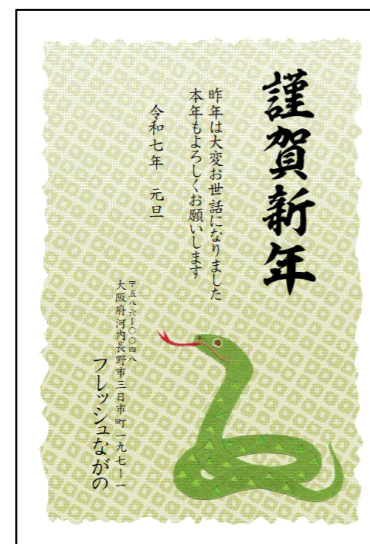 謹賀新年
昨年は大変お世話になりました
本年もよろしくお願いします
令和七年　元旦
〒五八六-〇〇四八
大阪府河内長野市三日市町一九七-一
フレッシュながの